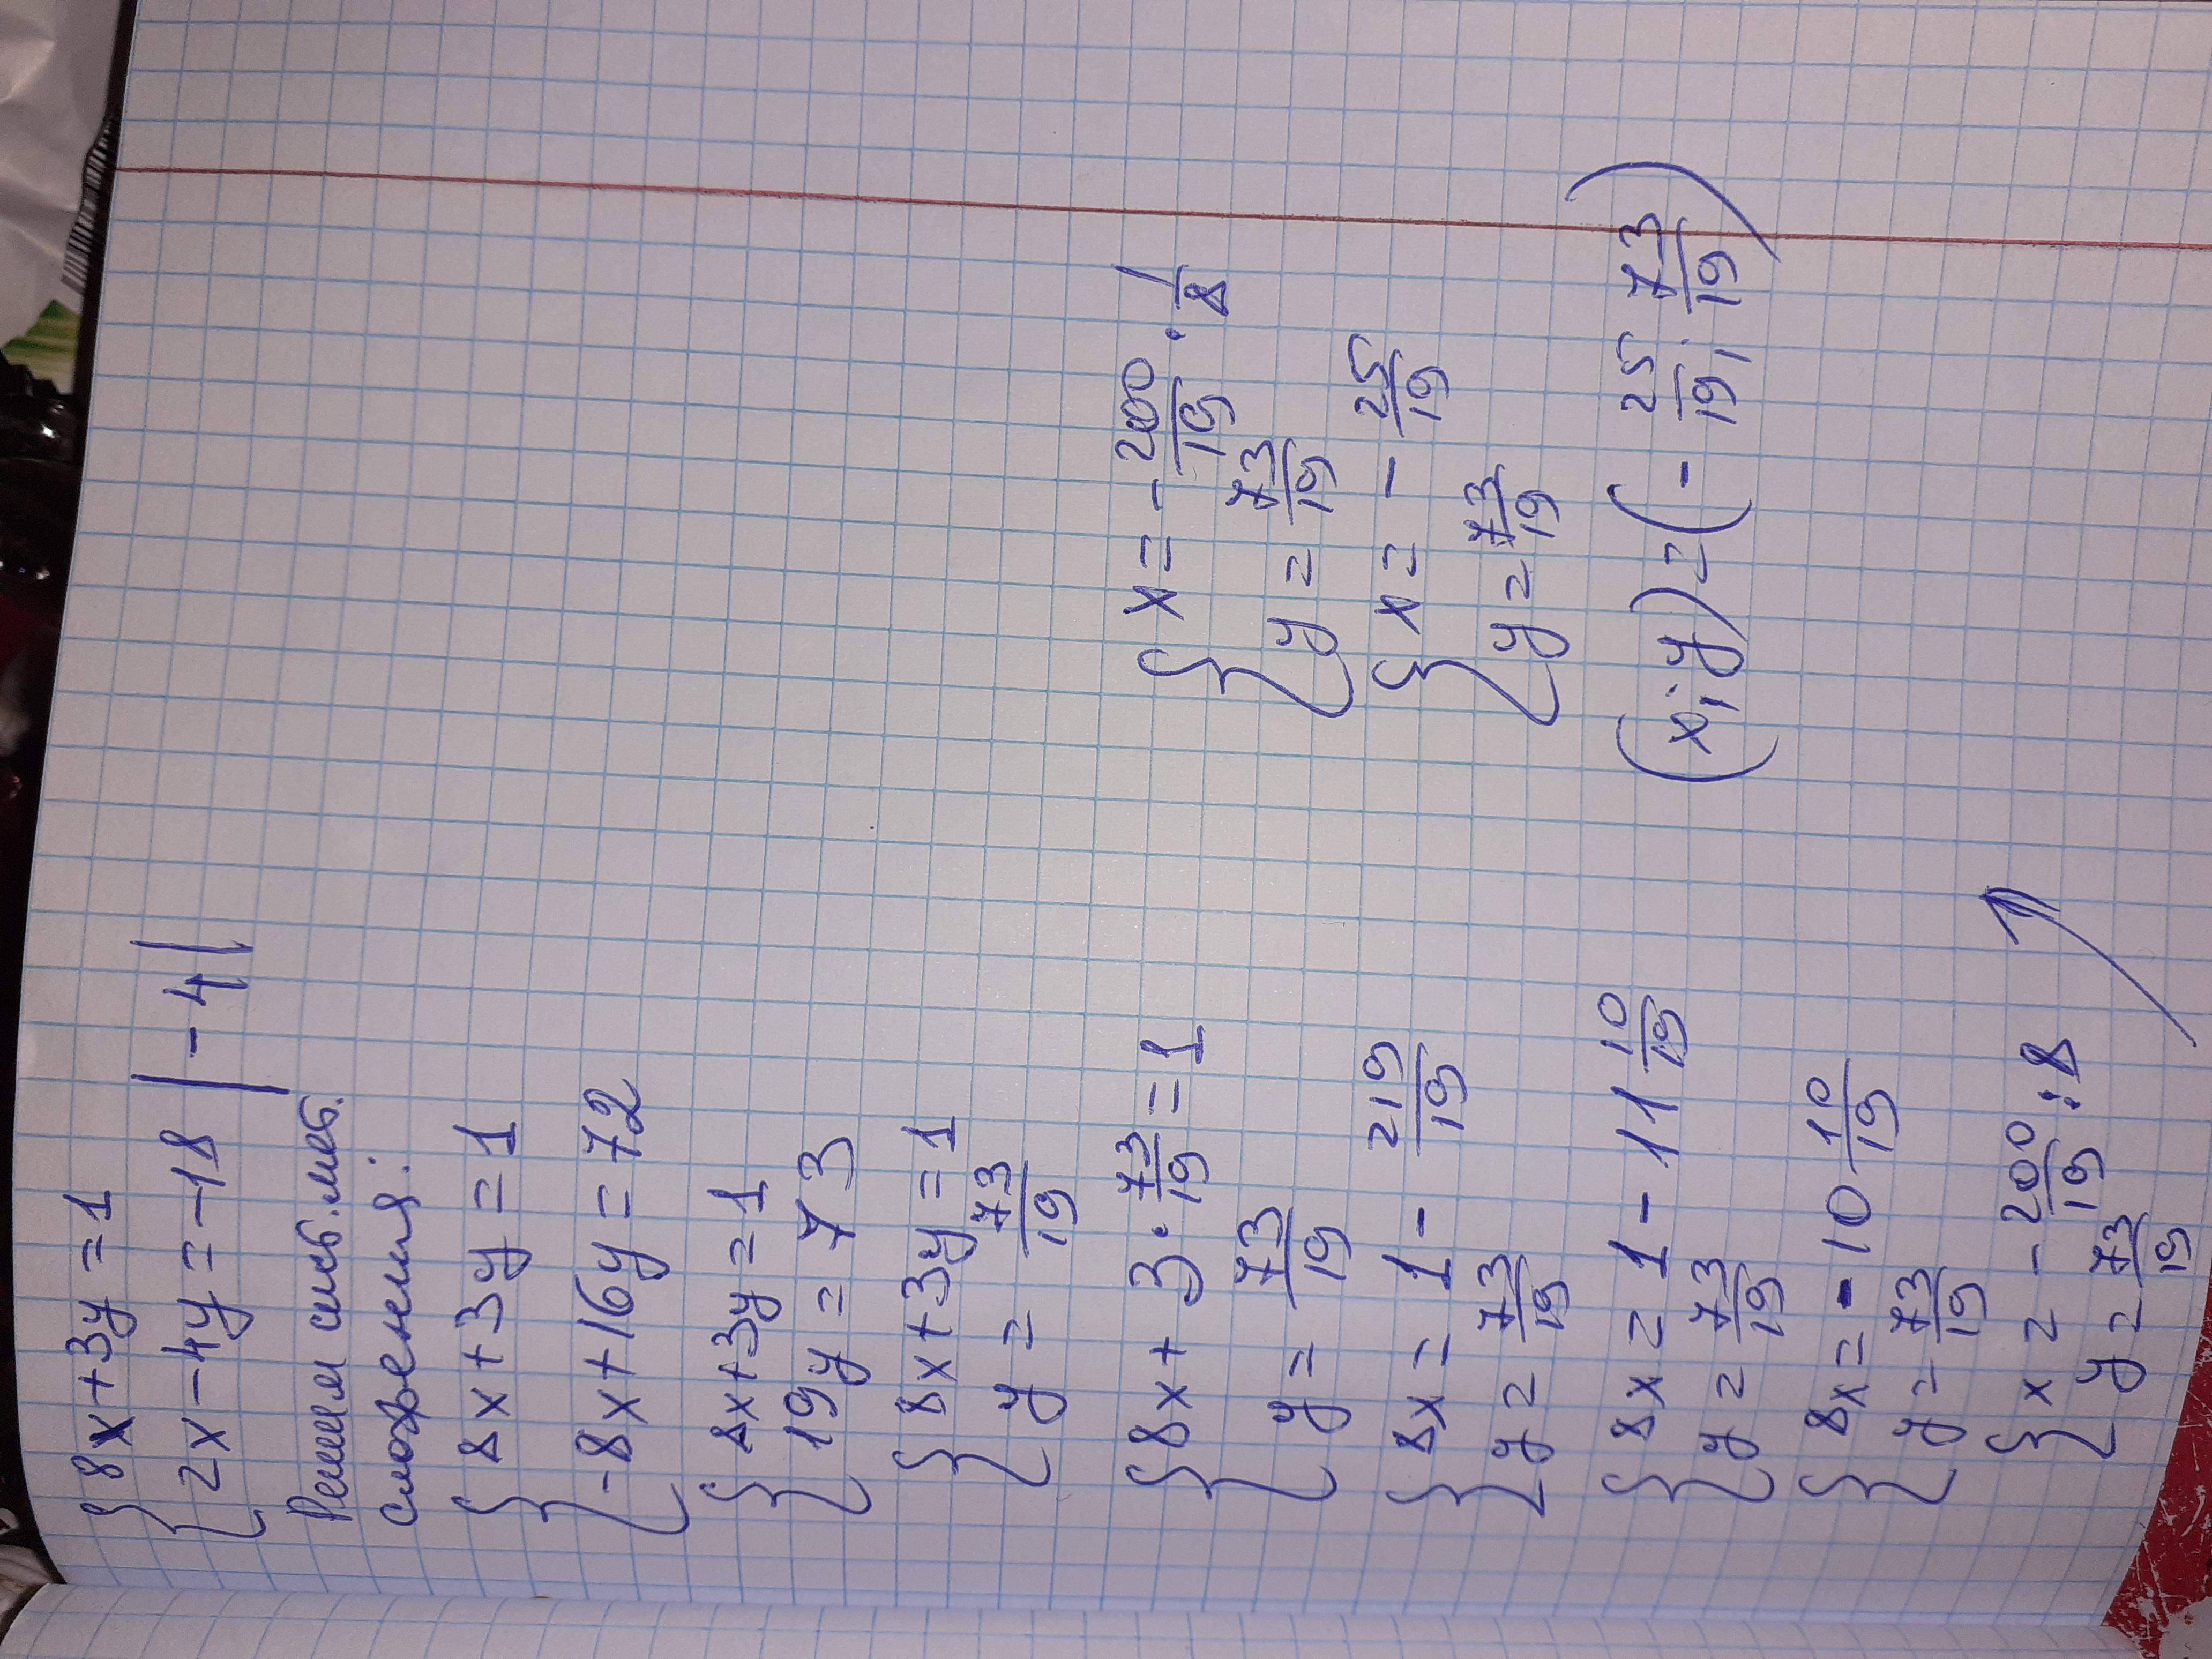 { 8x+3y=1
{ 2x-4y=-18 | -4 |
Решим сист. мет.
сложения:
{ 8x+3y=1
{ -8x+16y=72
{ 8x+3y=1
{ 19y=73
{ 8x+3y=1
{ y=73/19
{ 8x+3·73/19=1
{ y=73/19
{ 8x=1-219/19
{ y=73/19
{ 8x=1-11 10/19
{ y=73/19
{ 8x=-10 10/19
{ y=73/19
{ x=-200/19:8
{ y=73/19
{ x=-200/19·1/8
{ y=73/19
{ x=-25/19
{ y=73/19
(x;y)=(-25/19;73/19)